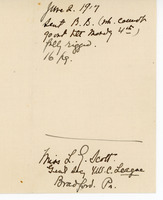 June 2. 1917
Sent B.B. (wh. cannot
go out till Monday 4th)
fully rigged.
16 pg.
Miss L. G. Scott.
Genl Secy Y.W.C. League
Bradford. Pa.